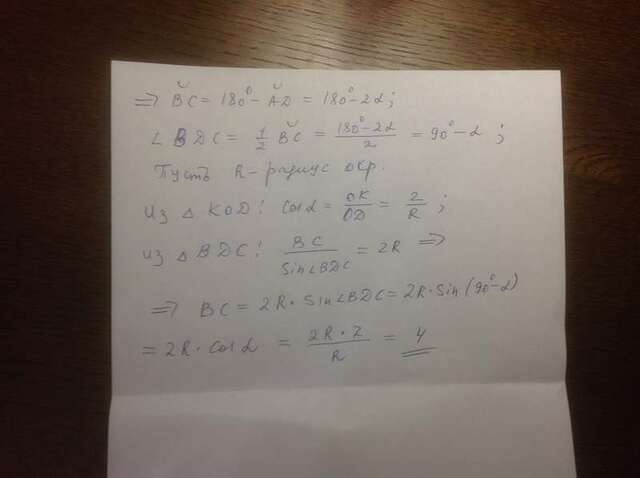 ⇒ ◡BC = 180° - ◡AD = 180° - 2α;
∠BDC = 1/2 ◡BC = (180° - 2α)/2 = 90° - α;
Пусть R - радиус окр.
Из △KOD: cosα = OK/OD = 2/R;
Из △BDC: BC/sin∠BDC = 2R ⇒
⇒ BC = 2R·sin∠BDC = 2R·sin(90°-α)
= 2R·cosα = 2R·2/R = 4